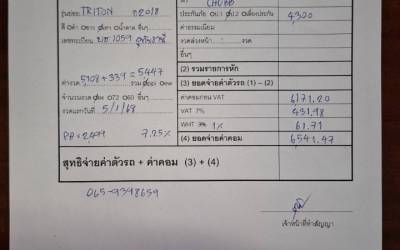 CHUBB
รุ่นย่อย TRITON ปี 2018
4,300
ค่าธรรมเนียม
เลขทะเบียน บษ 1059
อื่นๆ
(2) รวมรายการหัก
ค่างวด 5,108 + 339 = 5447
(3) ยอดจ่ายค่าตัวรถ (1) - (2)
จำนวนงวด 072 060 อื่นๆ
ค่าคอมก่อน VAT 6,171.20
งวดแรกวันที่ 5/1/68
VAT 7% 431.98
WHT 3% 1% 61.71
7.25%
(4) ยอดจ่ายค่าคอม 6,541.47
สุทธิจ่ายค่าตัวรถ + ค่าคอม (3) + (4)
065-9398659
เจ้าหน้าที่ทำสัญญา